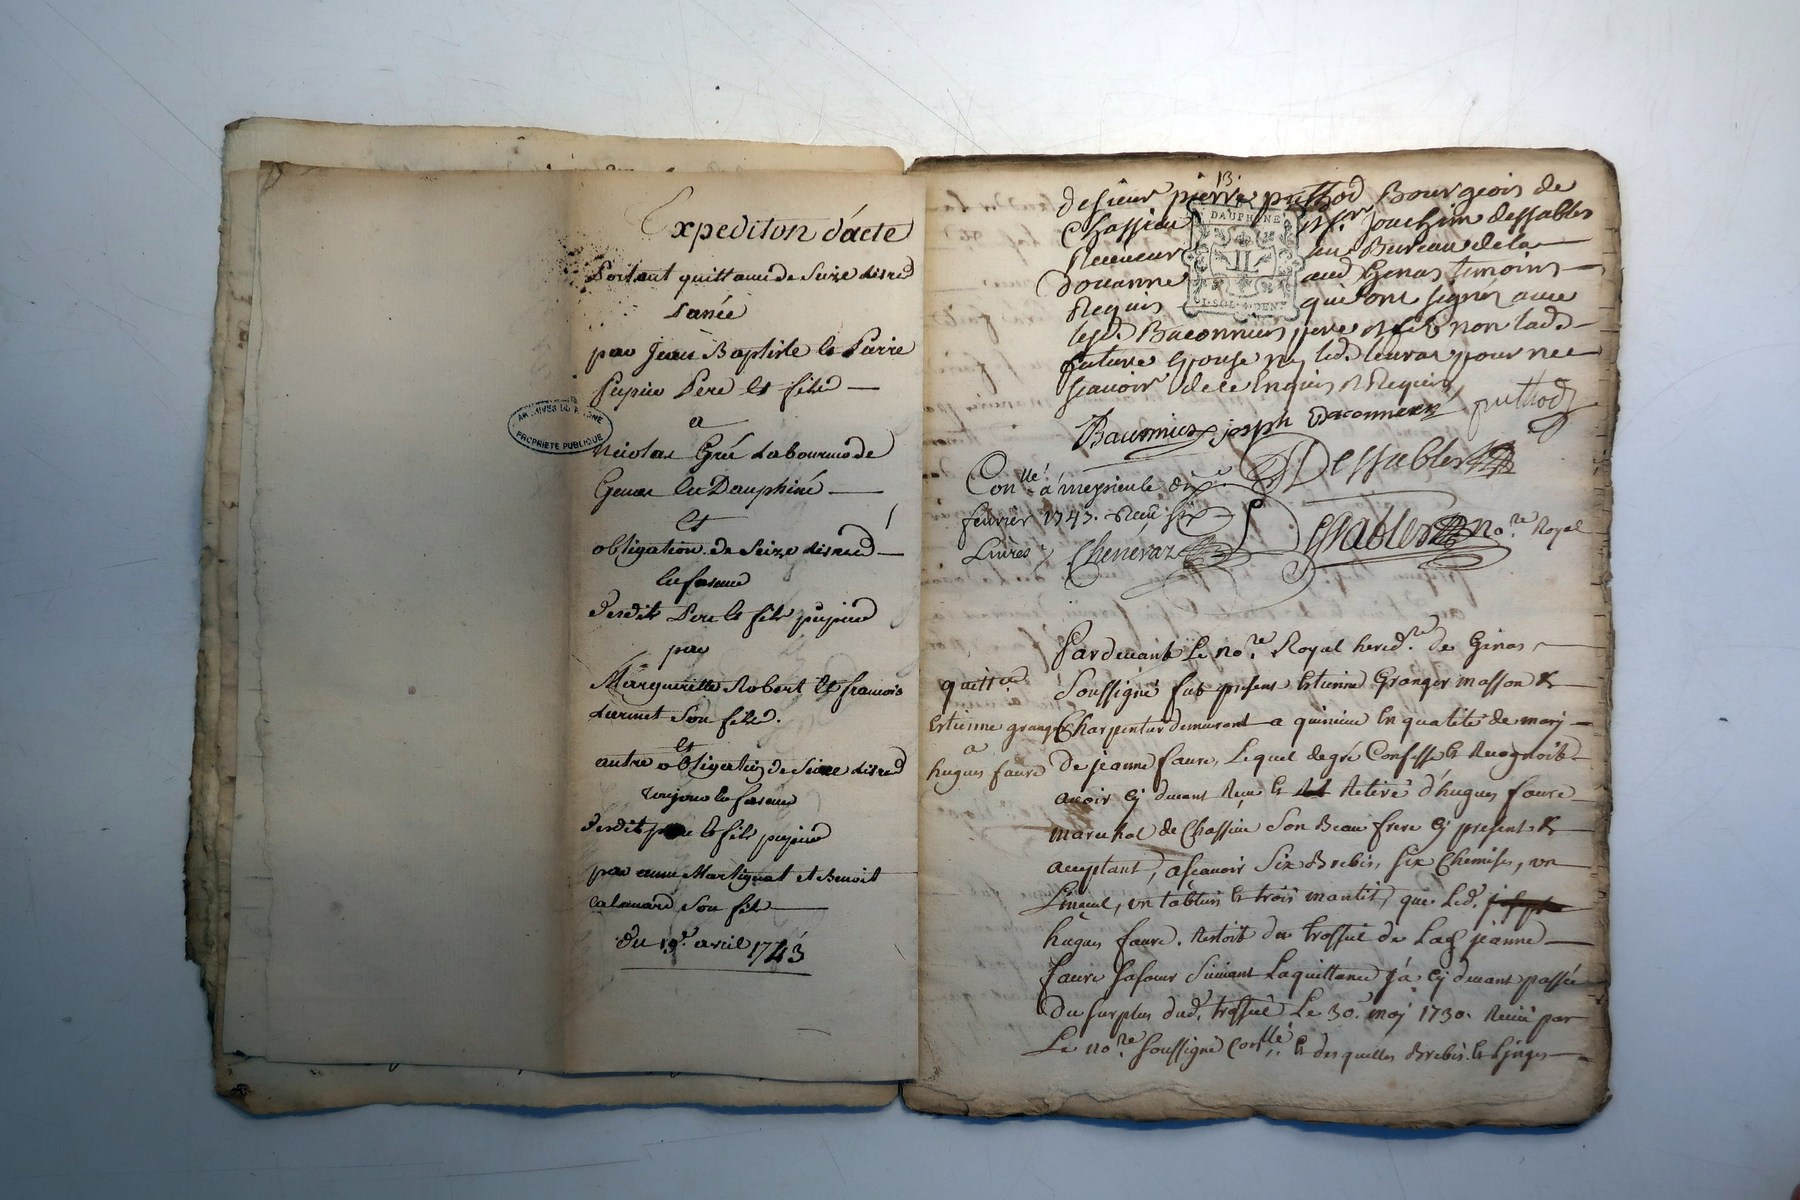 Expediton d'acte
Portant quittance de Seize
L'année
par Jean Baptiste et Pierre
pupier Pere et fils
a
Nicolas Laboureur de
Genas en Dauphiné
Et
obligation de Seize
en faveur
desdits Pere et fils pupier
par
Margueritte Robert et francois
son fils.
et
autre obligation de Seize
toujours en faveur
desdits pere et fils pupier
par anne Martignat et Benoit
son fils
du 19e. avril 1743
ARCHIVES DU RHONE
PROPRIETE PUBLIQUE
13.
de sieur pierre puthod Bourgeois de
Chassieu et sr. Joachim dessables
Receveur au Bureau de la
Douanne aud Genas temoins
Requis qui ont signés avec
lesd. Baconnier pere et fils non lad.
future Epouse ny led. pour ne
scavoir de ce Enquis et Requis
DAUPHINE
II
SOL. DEN
Baconnier joseph Baconnier puthod
Dessables
Conllé. a meyrieule dix
fevrier 1743. Recu six
Livres Cheneraz
Dessables no.re Royal
Pardevant Le no.re Royal hered.re de Genas
Soussigné fut present Estienne Granger masson &
Charpentier demeurant a en qualité de mary
de jeanne faure, Lequel de gré Confesse et Recognoit
avoir cy devant Receu et Retiré d'hugues faure
marechal de Chassieu Son Beau frere cy present &
acceptant, ascavoir Six Brebis, six Chemises, un
Linceul, un tablier et trois mantis, que Led.
hugues faure. Restoit du trossel de Lad. jeanne
faure sa soeur Suivant La quittance ja cy devant passée
du surplus dud. trossel Le 30. may 1730. Receu par
Le no.re soussigné Conllé. et desquelles Brebis et Linges
quitt.ce
Estienne granger
a
hugues faure